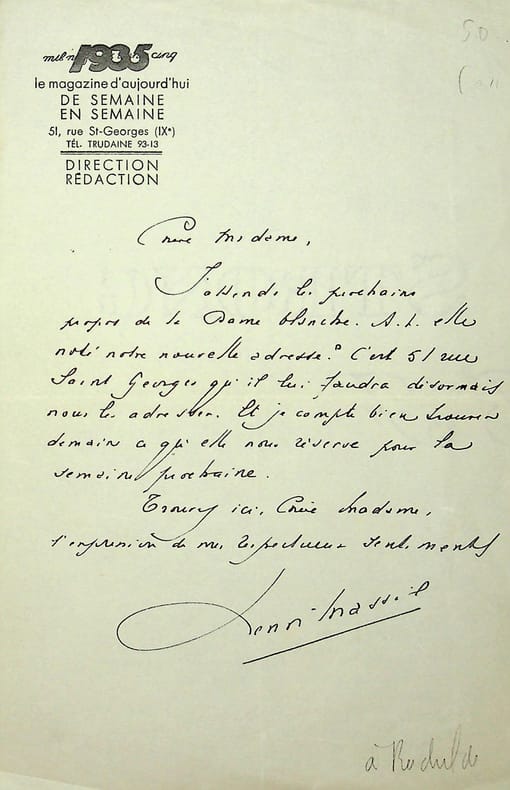 mil n 1935 cinq
le magazine d'aujourd'hui
DE SEMAINE
EN SEMAINE
51, rue St-Georges (IXe)
TÉL. TRUDAINE 93-13
DIRECTION
RÉDACTION
50
Chère Madame,
J'attends les prochains
propos de la Dame blanche. A.t. elle
noté notre nouvelle adresse? C'est 51 rue
Saint Georges qu'il lui faudra désormais
nous les adresser. Et je compte bien trouver
demain ce qu'elle nous réserve pour la
semaine prochaine.
Trouvez ici, Chère Madame,
l'expression de mes respectueux sentiments
Henri Massis
à Rachilde